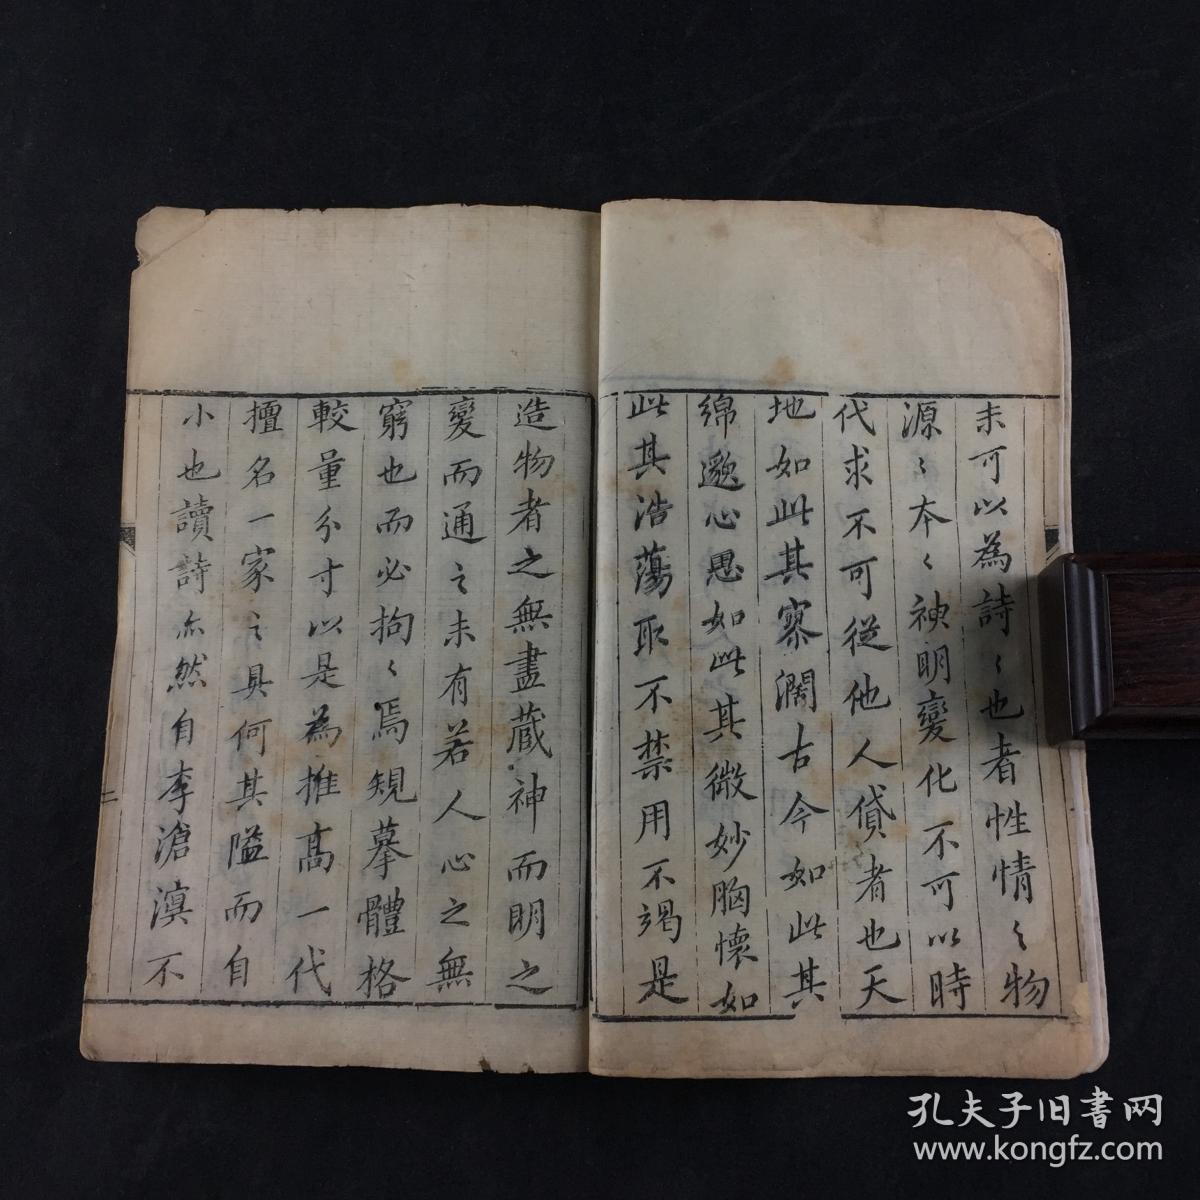 未可以為詩〻也者性情〻物
源〻本〻神明變化不可以時
代求不可從他人貸者也天
地如此其寥濶古今如此其
綿邈心思如此其微妙胸懷如
此其浩蕩取不禁用不竭是
造物者之無盡藏神而明之
變而通之未有若人心之無
窮也而必拘〻焉規摹體格
較量分寸以是為推高一代
擅名一家之具何其隘而自
小也讀詩亦然自李滄溟不
二
孔夫子旧書网
www.kongfz.com